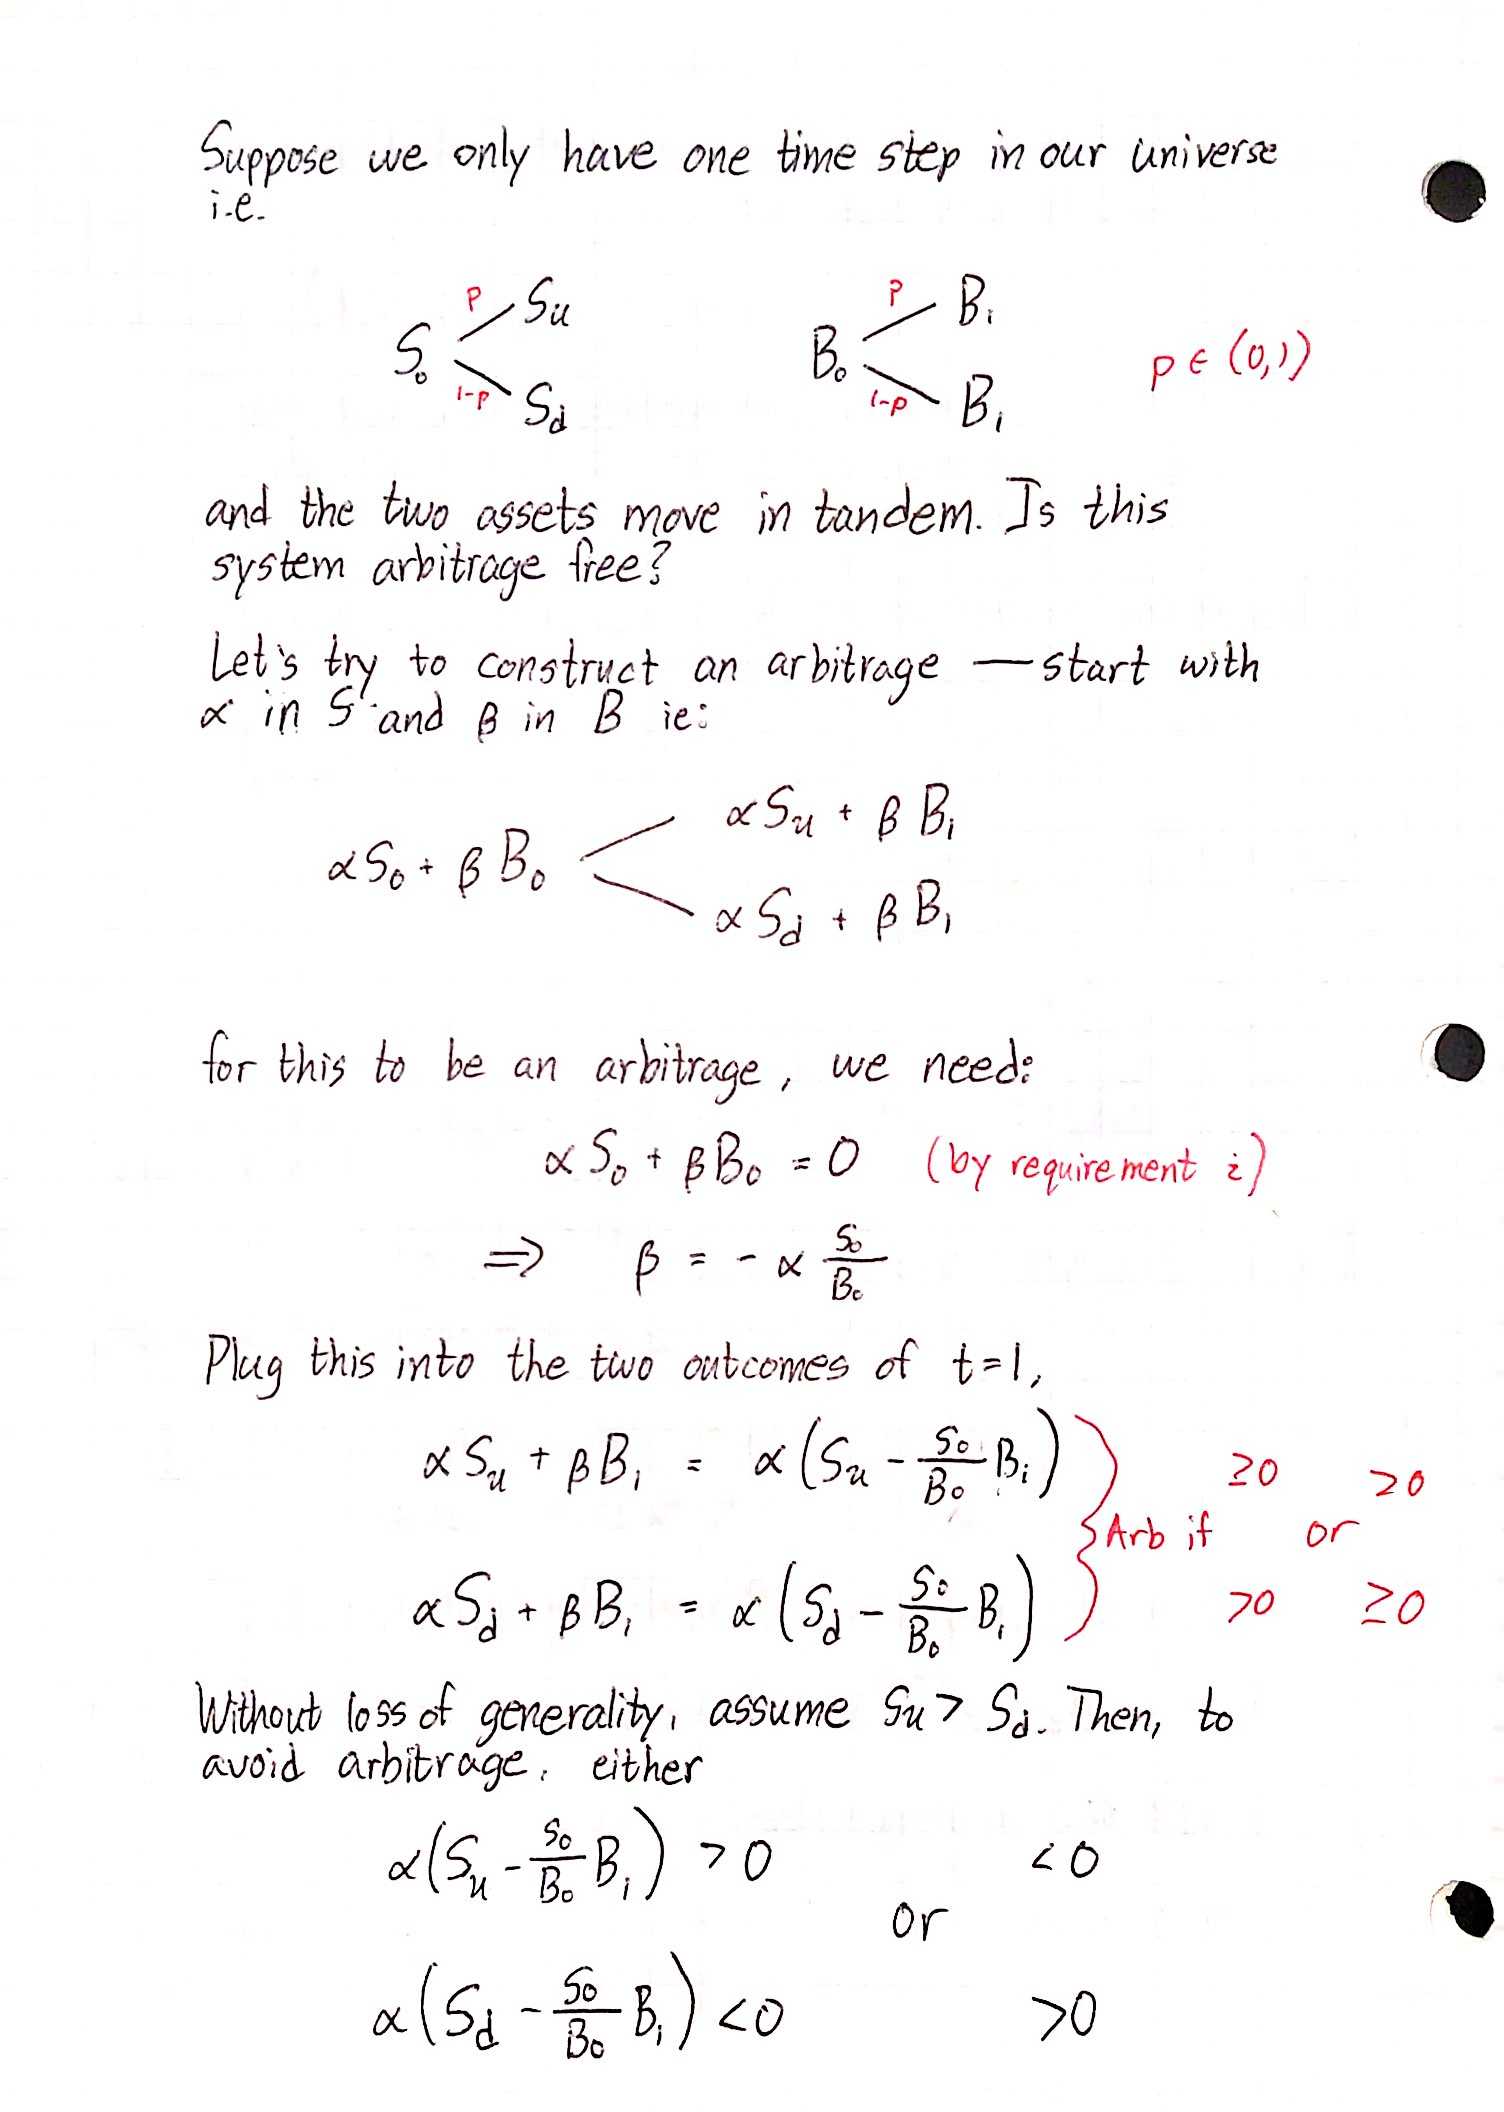 Suppose we only have one time step in our universe
i.e.
S₀ p Su 1-p Sd B₀ p B₁ 1-p B₁ p ∈ (0,1)
and the two assets move in tandem. Is this
system arbitrage free?
Let's try to construct an arbitrage — start with
α in S and β in B ie:
αSu + βB₁
αS₀ + βB₀
αSd + βB₁
for this to be an arbitrage, we need:
αS₀ + βB₀ = 0 (by requirement i)
⇒ β = -α S₀/B₀
Plug this into the two outcomes of t=1,
αSu + βB₁ = α(Su - S₀/B₀ B₁) ≥0 >0
Arb if or
αSd + βB₁ = α(Sd - S₀/B₀ B₁) >0 ≥0
Without loss of generality, assume Su > Sd. Then, to
avoid arbitrage, either
α(Su - S₀/B₀ B₁) > 0 < 0
or
α(Sd - S₀/B₀ B₁) < 0 > 0